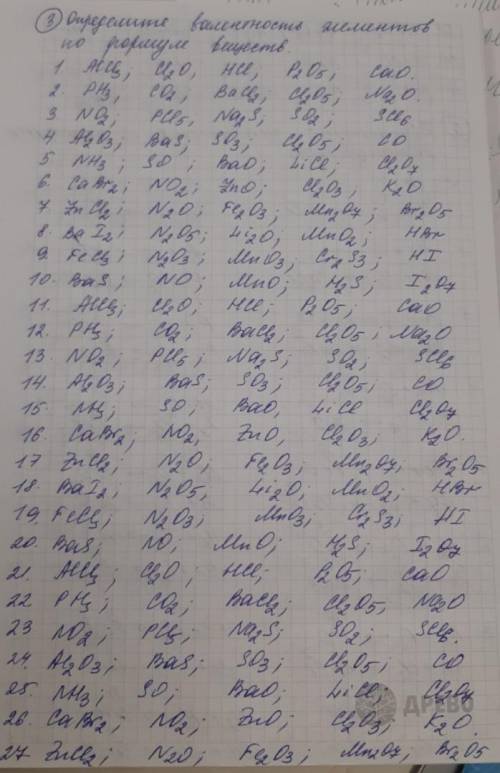 ③ Определите валентность элементов
по формуле веществ.
1. AlCl₃; Cl₂O, HCl, P₂O₅, CaO.
2. PH₃, CO₂; BaCl₂; Cl₂O₅; Na₂O.
3 NO₂; PCl₅, Na₂S; SO₂; SCl₆
4 Al₂O₃; BaS; SO₃; Cl₂O₅; CO
5 NH₃; SO; BaO; LiCl; Cl₂O₇
6. CaBr₂; NO₂; ZnO; Cl₂O₃; K₂O
7. ZnCl₂; N₂O; Fe₂O₃; Mn₂O₇; Br₂O₅
8. BaI₂; N₂O₅; Li₂O; MnO₂; HBr
9. FeCl₃; N₂O₃; MnO₃; Cr₂S₃; HI
10. BaS; NO; MnO; H₂S; I₂O₇
11. AlCl₃; Cl₂O; HCl; P₂O₅; CaO
12. PH₃; CO₂; BaCl₂; Cl₂O₅; Na₂O
13. NO₂; PCl₅; Na₂S; SO₂; SCl₆
14. Al₂O₃; BaS; SO₃; Cl₂O₅; CO
15. NH₃; SO; BaO, LiCl Cl₂O₇
16. CaBr₂; NO₂, ZnO, Cl₂O₃; K₂O.
17 ZnCl₂; N₂O; Fe₂O₃; Mn₂O₇, Br₂O₅
18. BaI₂; N₂O₅; Li₂O; MnO₂; HBr
19. FeCl₃; N₂O₃; MnO₃; Cr₂S₃; HI
20. BaS; NO; MnO; H₂S; I₂O₇
21. AlCl₃; Cl₂O; HCl; P₂O₅; CaO
22 PH₃; CO₂; BaCl₂; Cl₂O₅, Na₂O
23 NO₂; PCl₅; Na₂S; SO₂; SCl₆.
24. Al₂O₃; BaS; SO₃; Cl₂O₅; CO
25. NH₃; SO; BaO; LiCl; Cl₂O₇
26. CaBr₂; NO₂; ZnO; Cl₂O₃; K₂O.
27. ZnCl₂; N₂O; Fe₂O₃; Mn₂O₇; Br₂O₅
ДРЕВО